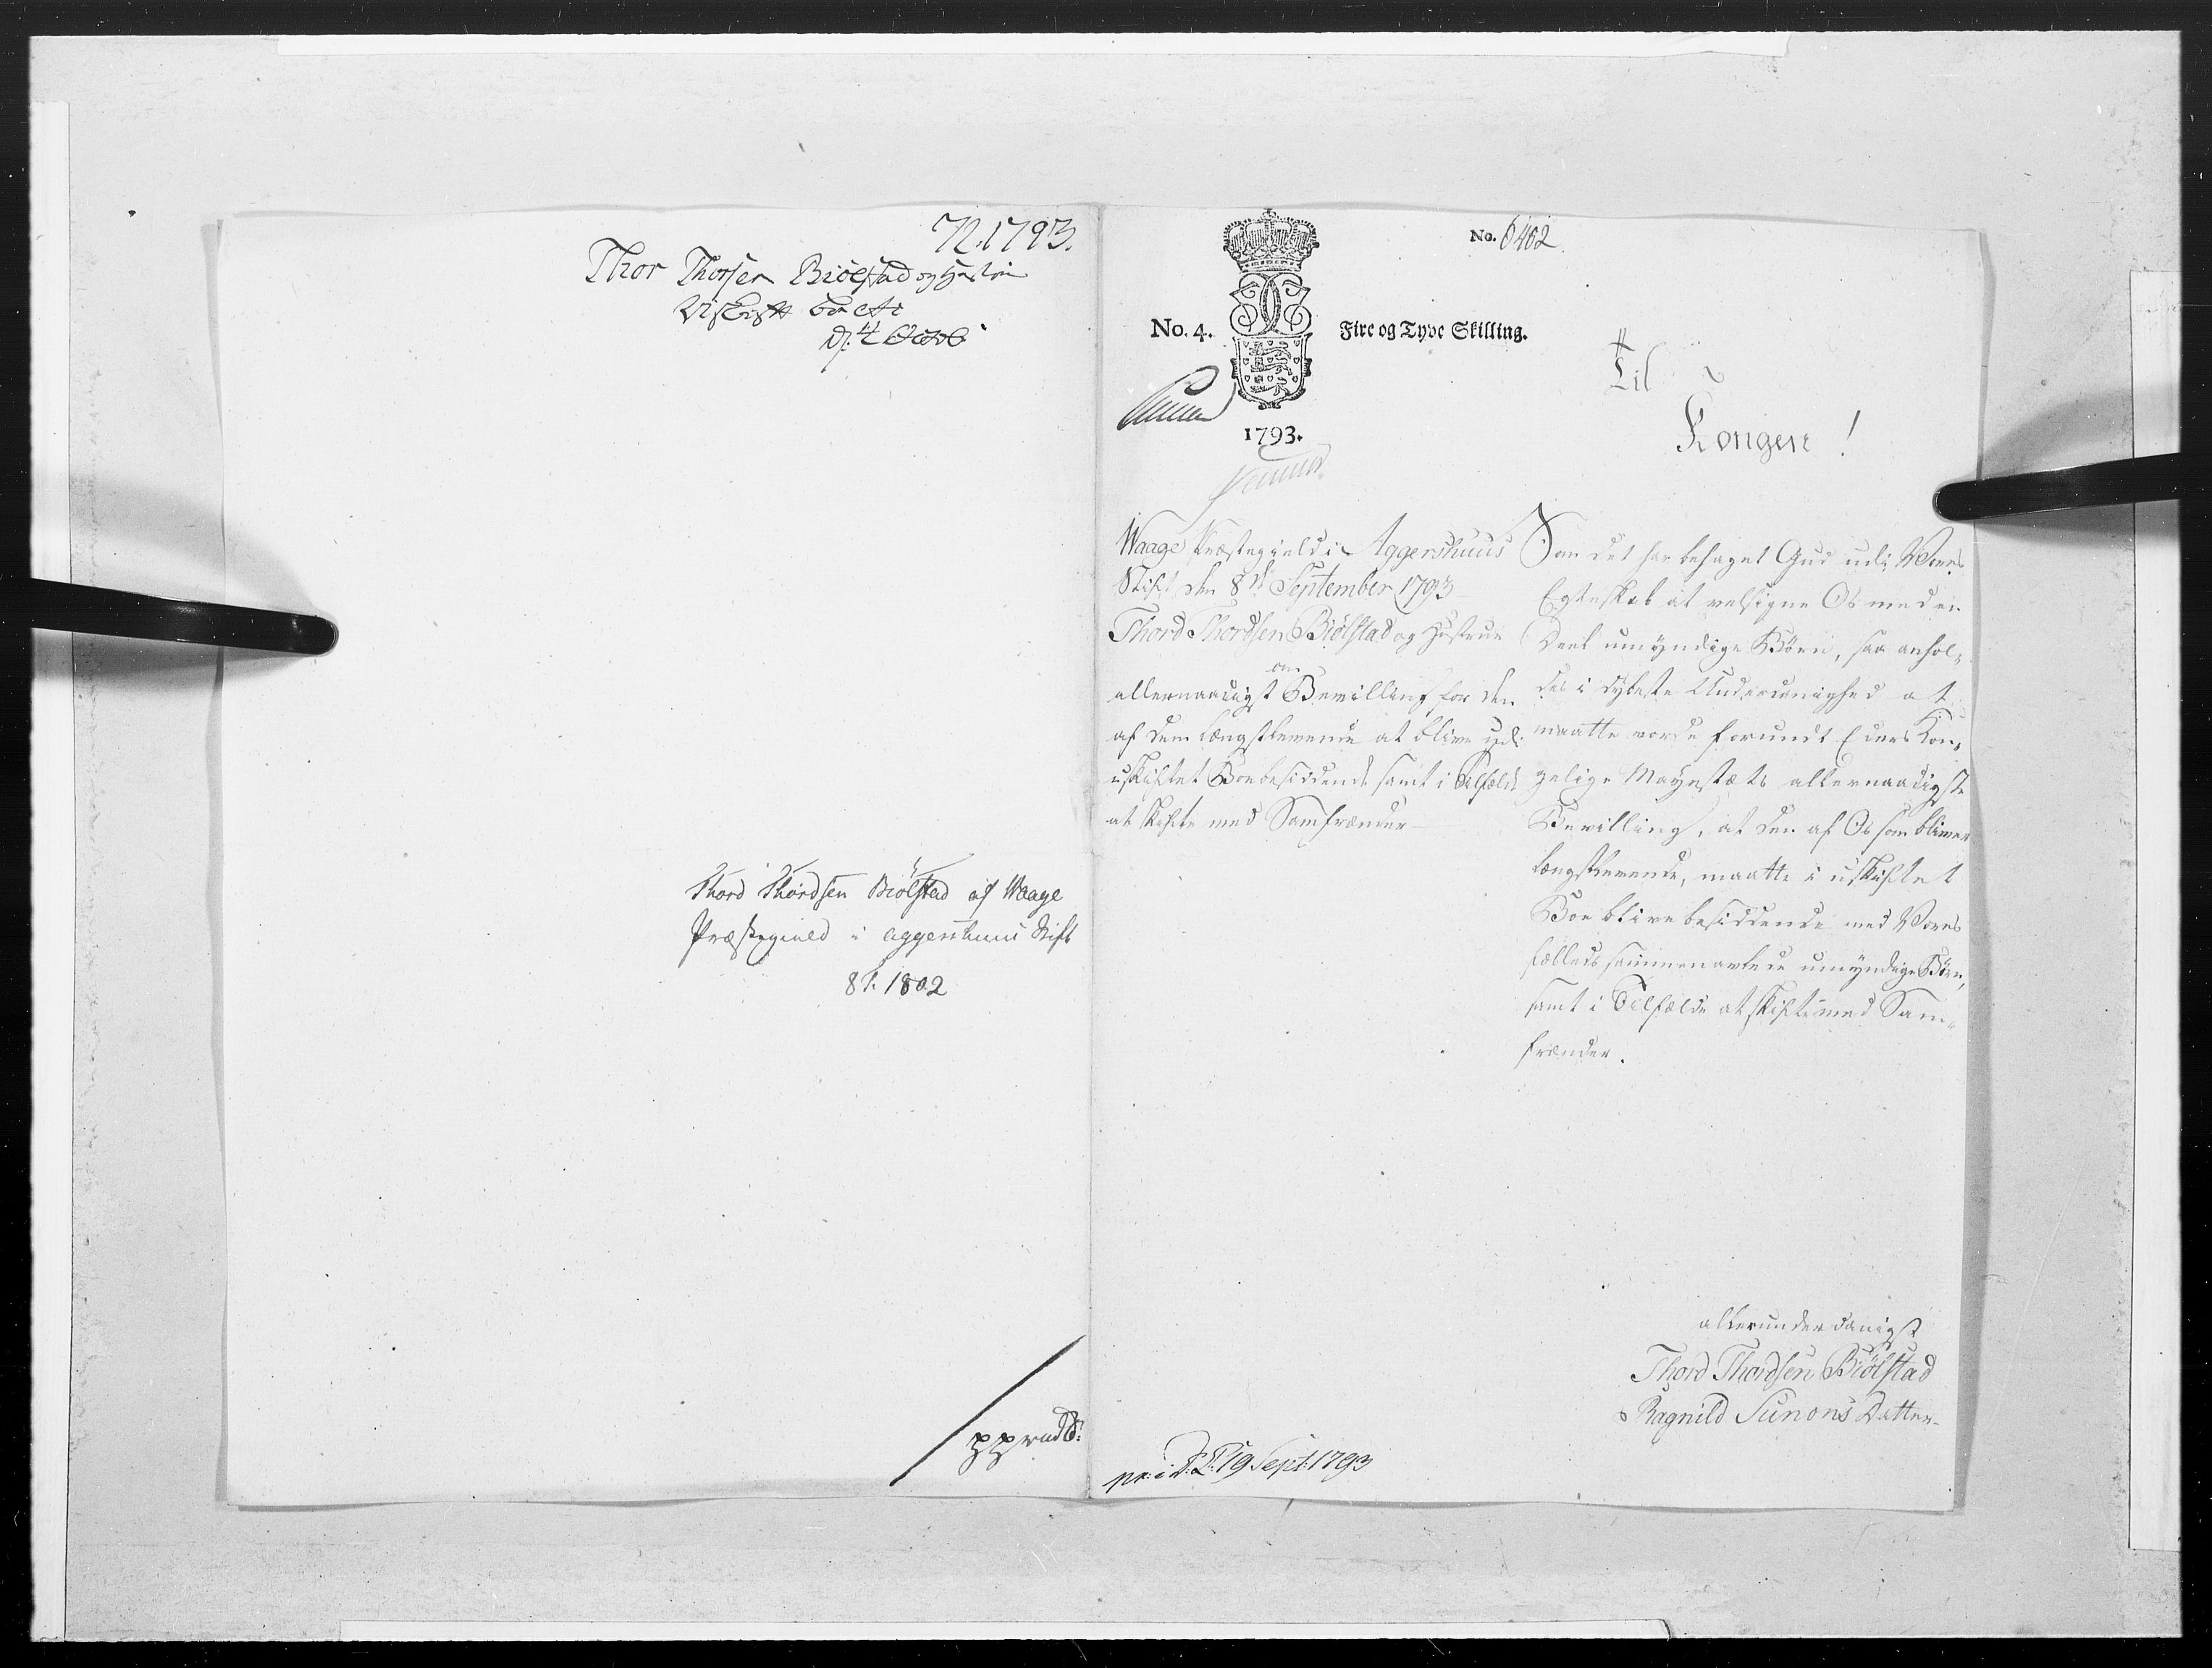 72. 1793.
Thor Thorsen Biølstad og Hustrue
Uskift
D. 4 Octob
Thord Thordsen Biølstad af Waage
Præstegield i Aggershuus Stift
8 1802
No. 6402
No. 4.
Fire og Tyve Skilling.
1793.
Til
Kongen!
Waage Præstegield i Aggershuus
Stift den 8de September 1793
Thord Thordsen Biølstad og Hustrue
om
allernaadigst Bevilling for den
af dem længstlevende at blive udi
uskiftet Boe besiddende samt i Tilfælde
at skifte med Samfrænder
Som det har behaget Gud udi Vores
Egteskab at velsigne Os med en
Deel umyndige Børn, saa anhol„
des i dybeste Underdanighed at
maatte vorde forundt Eders Kon„
gelige Mayestæts allernaadigste
Bevilling, at den af Os som bliver
længstlevende, maatte i uskiftet
Boe blive besiddende med Vores
fælleds sammenavlede umyndige Børn,
samt i Tilfælde at skifte med Sam„
frænder.
allerunderdanigst
Thord Thordsen Biølstad
Ragnild Simons Datter
pr: i D: C: 19 Sept: 1793